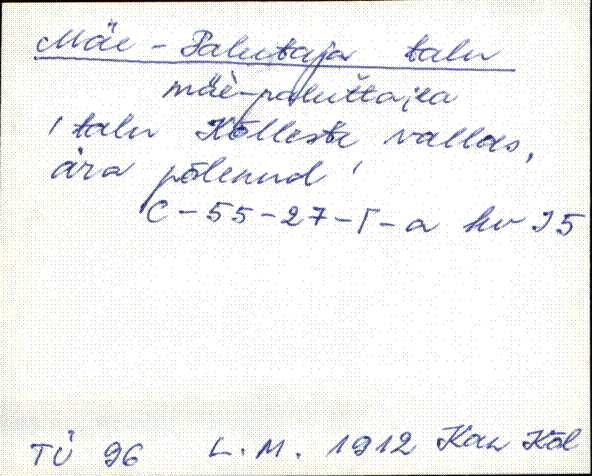 Mäe-Palutaja talu
mäe-paluttajea
'talu Kõlleste vallas,
ära põlenud'
C-55-27-Г-a kv 95
TÜ 96 L.M. 1912 Kan Kõl